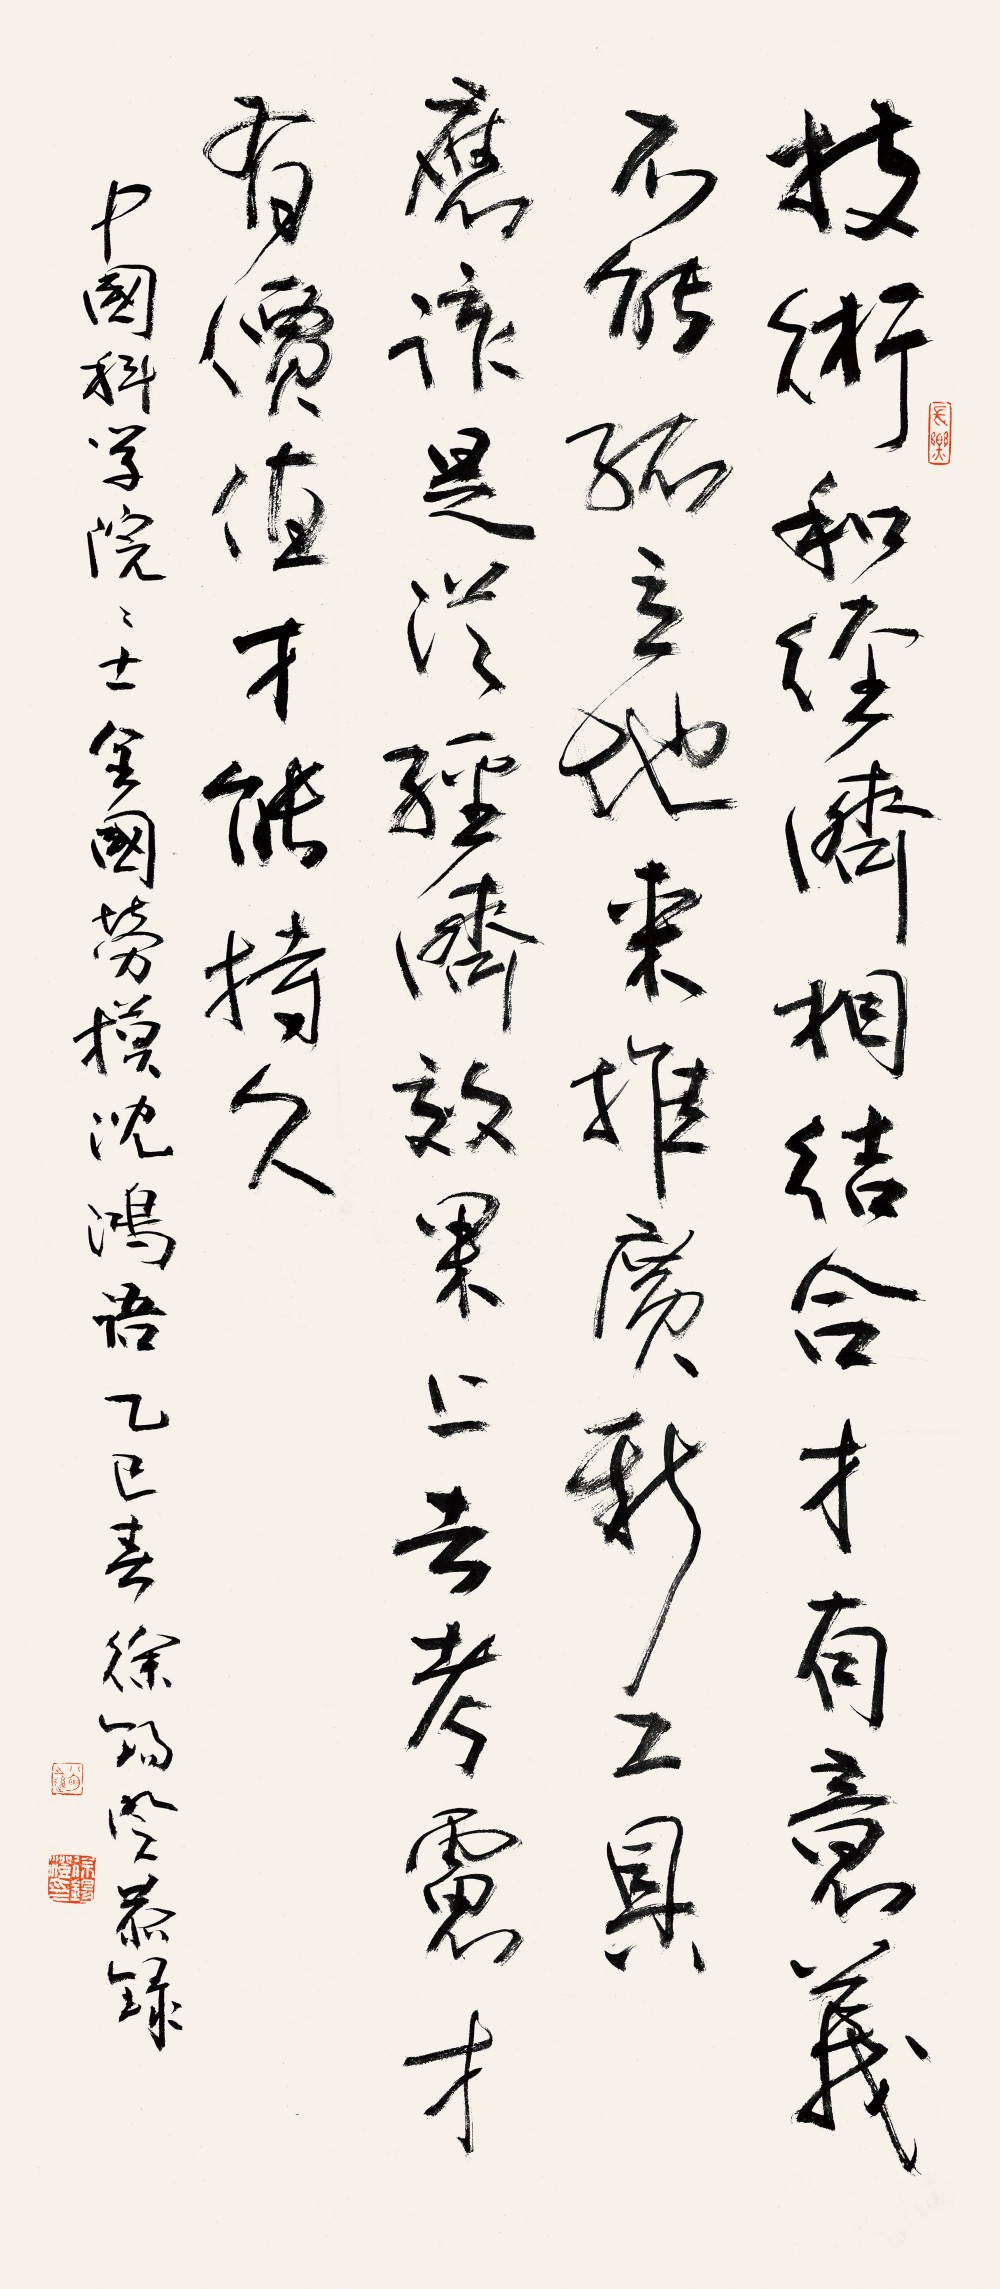 技術和經濟相結合才有意義
不能孤立地來推廣新工具
應該是從經濟效果上去考慮才
有價值才能持久
中國科学院院士全國勞模沈鴻语乙巳春徐錫澄恭録
長樂